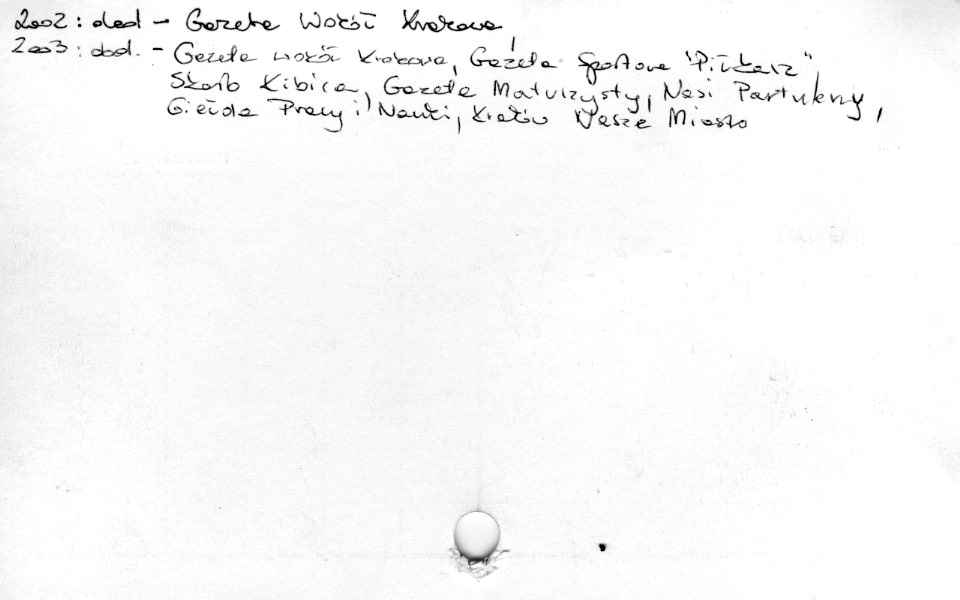 2002: dod – Gazeta Wokół Krakowa,
2003: dod. – Gazeta wokół Krakowa, Gazeta Sportowa "Piłkarz",
Skarb Kibica, Gazeta Maturzysty, Nasi Partnerzy,
Giełda Pracy i Nauki, Kraków Nasze Miasto